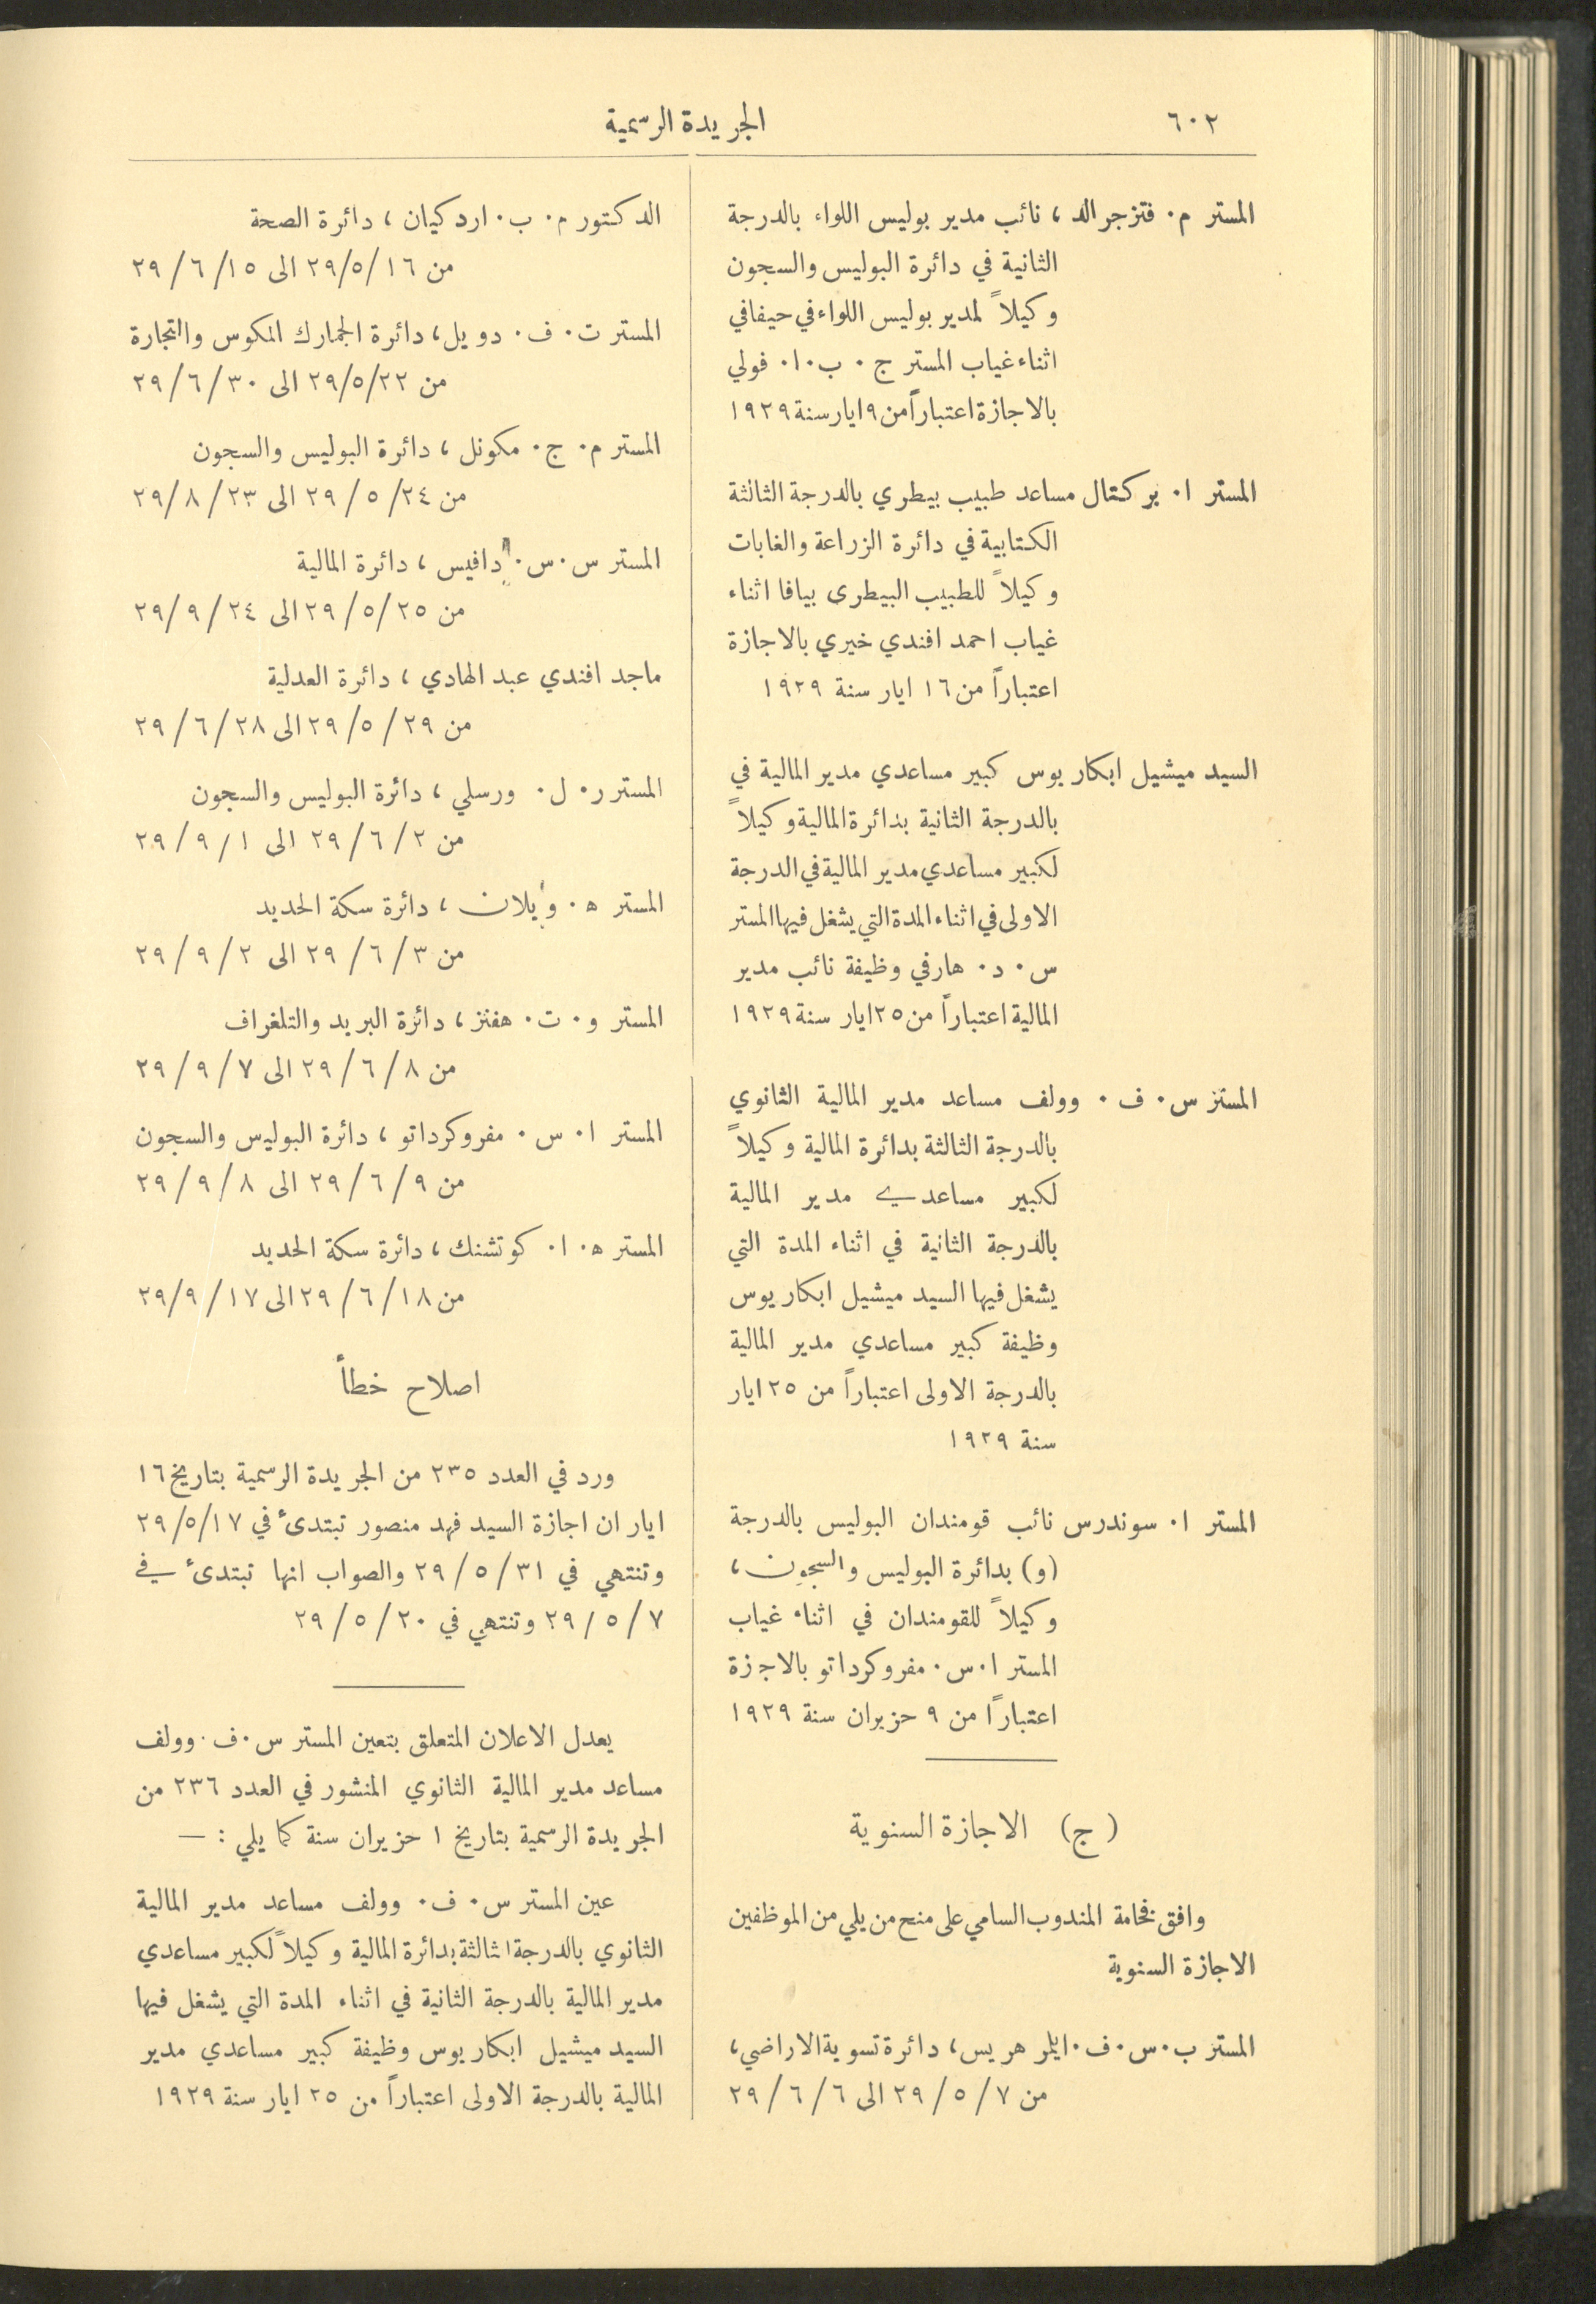 ٦٠٢
الجريدة الرسمية
المستر م. فتزجرالد ، نائب مدير بوليس اللواء بالدرجة
الثانية في دائرة البوليس والسجون
وكيلاً لمدير بوليس اللواء في حيفا في
اثناء غياب المستر ج. ب. ا. فولي
بالاجازة اعتباراً من ٩ ايار سنة ١٩٢٩
المستر ا. بركتال مساعد طبيب بيطري بالدرجة الثالثة
الكتابية في دائرة الزراعة والغابات
وكيلاً للطبيب البيطرى بيافا اثناء
غياب احمد افندي خيري بالاجازة
اعتباراً من ١٦ ايار سنة ١٩٢٩
السيد ميشيل ابكاريوس كبير مساعدي مدير المالية في
بالدرجة الثانية بدائرة المالية وكيلاً
لكبير مساعدي مدير المالية في الدرجة
الاولى في اثناء المدة التي يشغل فيها المستر
س. د. هارفي وظيفة نائب مدير
المالية اعتباراً من ٢٥ ايار سنة ١٩٢٩
المستر س. ف. وولف مساعد مدير المالية الثانوي
بالدرجة الثالثة بدائرة المالية وكيلاً
لكبير مساعدي مدير المالية
بالدرجة الثانية في اثناء المدة التي
يشغل فيها السيد ميشيل ابكاريوس
وظيفة كبير مساعدي مدير المالية
بالدرجة الاولى اعتباراً من ٢٥ ايار
سنة ١٩٢٩
المستر ا. سوندرس نائب قومندان البوليس بالدرجة
(و) بدائرة البوليس والسجون ،
وكيلاً للقومندان في اثناء غياب
المستر ا. س. مفروكرداتو بالاجزة
اعتباراً من ٩ حزيران سنة ١٩٢٩
(ج) الاجازة السنوية
وافق فخامة المندوب السامي على منح من يلي من الموظفين
الاجازة السنوية
المستر ب. س. ف. ايلمر هريس ، دائرة تسوية الاراضي ،
من ٧ / ٥ / ٢٩ الى ٦ / ٦ / ٢٩
الدكتور م. ب. اردكيان ، دائرة الصحة
من ١٦ / ٥ / ٢٩ الى ١٥ / ٦ / ٢٩
المستر ت. ف. دويل ، دائرة الجمارك المكوس والتجارة
من ٢٢ / ٥ / ٢٩ الى ٣٠ / ٦ / ٢٩
المستر م. ج. مكونل ، دائرة البوليس والسجون
من ٢٤ / ٥ / ٢٩ الى ٢٣ / ٨ / ٢٩
المستر س. س. دافيس ، دائرة المالية
من ٢٥ / ٥ / ٢٩ الى ٢٤ / ٩ / ٢٩
ماجد افندي عبد الهادي ، دائرة العدلية
من ٢٩ / ٥ / ٢٩ الى ٢٨ / ٦ / ٢٩
المستر ر. ل. ورسلي ، دائرة البوليس والسجون
من ٢ / ٦ / ٢٩ الى ١ / ٩ / ٢٩
المستر ه. ويلان ، دائرة سكة الحديد
من ٣ / ٦ / ٢٩ الى ٢ / ٩ / ٢٩
المستر و. ت. هفنز ، دائرة البريد والتلغراف
من ٨ / ٦ / ٢٩ الى ٧ / ٩ / ٢٩
المستر ا. س. مفروكرداتو ، دائرة البوليس والسجون
من ٩ / ٦ / ٢٩ الى ٨ / ٩ / ٢٩
المستر ه. ا. كوتشنك ، دائرة سكة الحديد
من ١٨ / ٦ / ٢٩ الى ١٧ / ٩ / ٢٩
اصلاح خطأ
ورد في العدد ٢٣٥ من الجريدة الرسمية بتاريخ ١٦
ايار ان اجازة السيد فهد منصور تبتدئ في ١٧ / ٥ / ٢٩
وتنتهي في ٣١ / ٥ / ٢٩ والصواب انها تبتدئ في
٧ / ٥ / ٢٩ وتنتهي في ٢٠ / ٥ / ٢٩
يعدل الاعلان المتعلق بتعين المستر س. ف. وولف
مساعد مدير المالية الثانوي المنشور في العدد ٢٣٦ من
الجريدة الرسمية بتاريخ ١ حزيران سنة كما يلي : —
عين المستر س. ف. وولف مساعد مدير المالية
الثانوي بالدرجة الثالثة بدائرة المالية وكيلاً لكبير مساعدي
مدير المالية بالدرجة الثانية في اثناء المدة التي يشغل فيها
السيد ميشيل ابكاريوس وظيفة كبير مساعدي مدير
المالية بالدرجة الاولى اعتباراً من ٢٥ ايار سنة ١٩٢٩